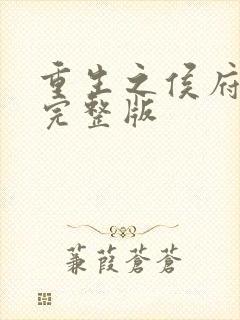 重生之侯府
完整版
蒹葭蒼蒼